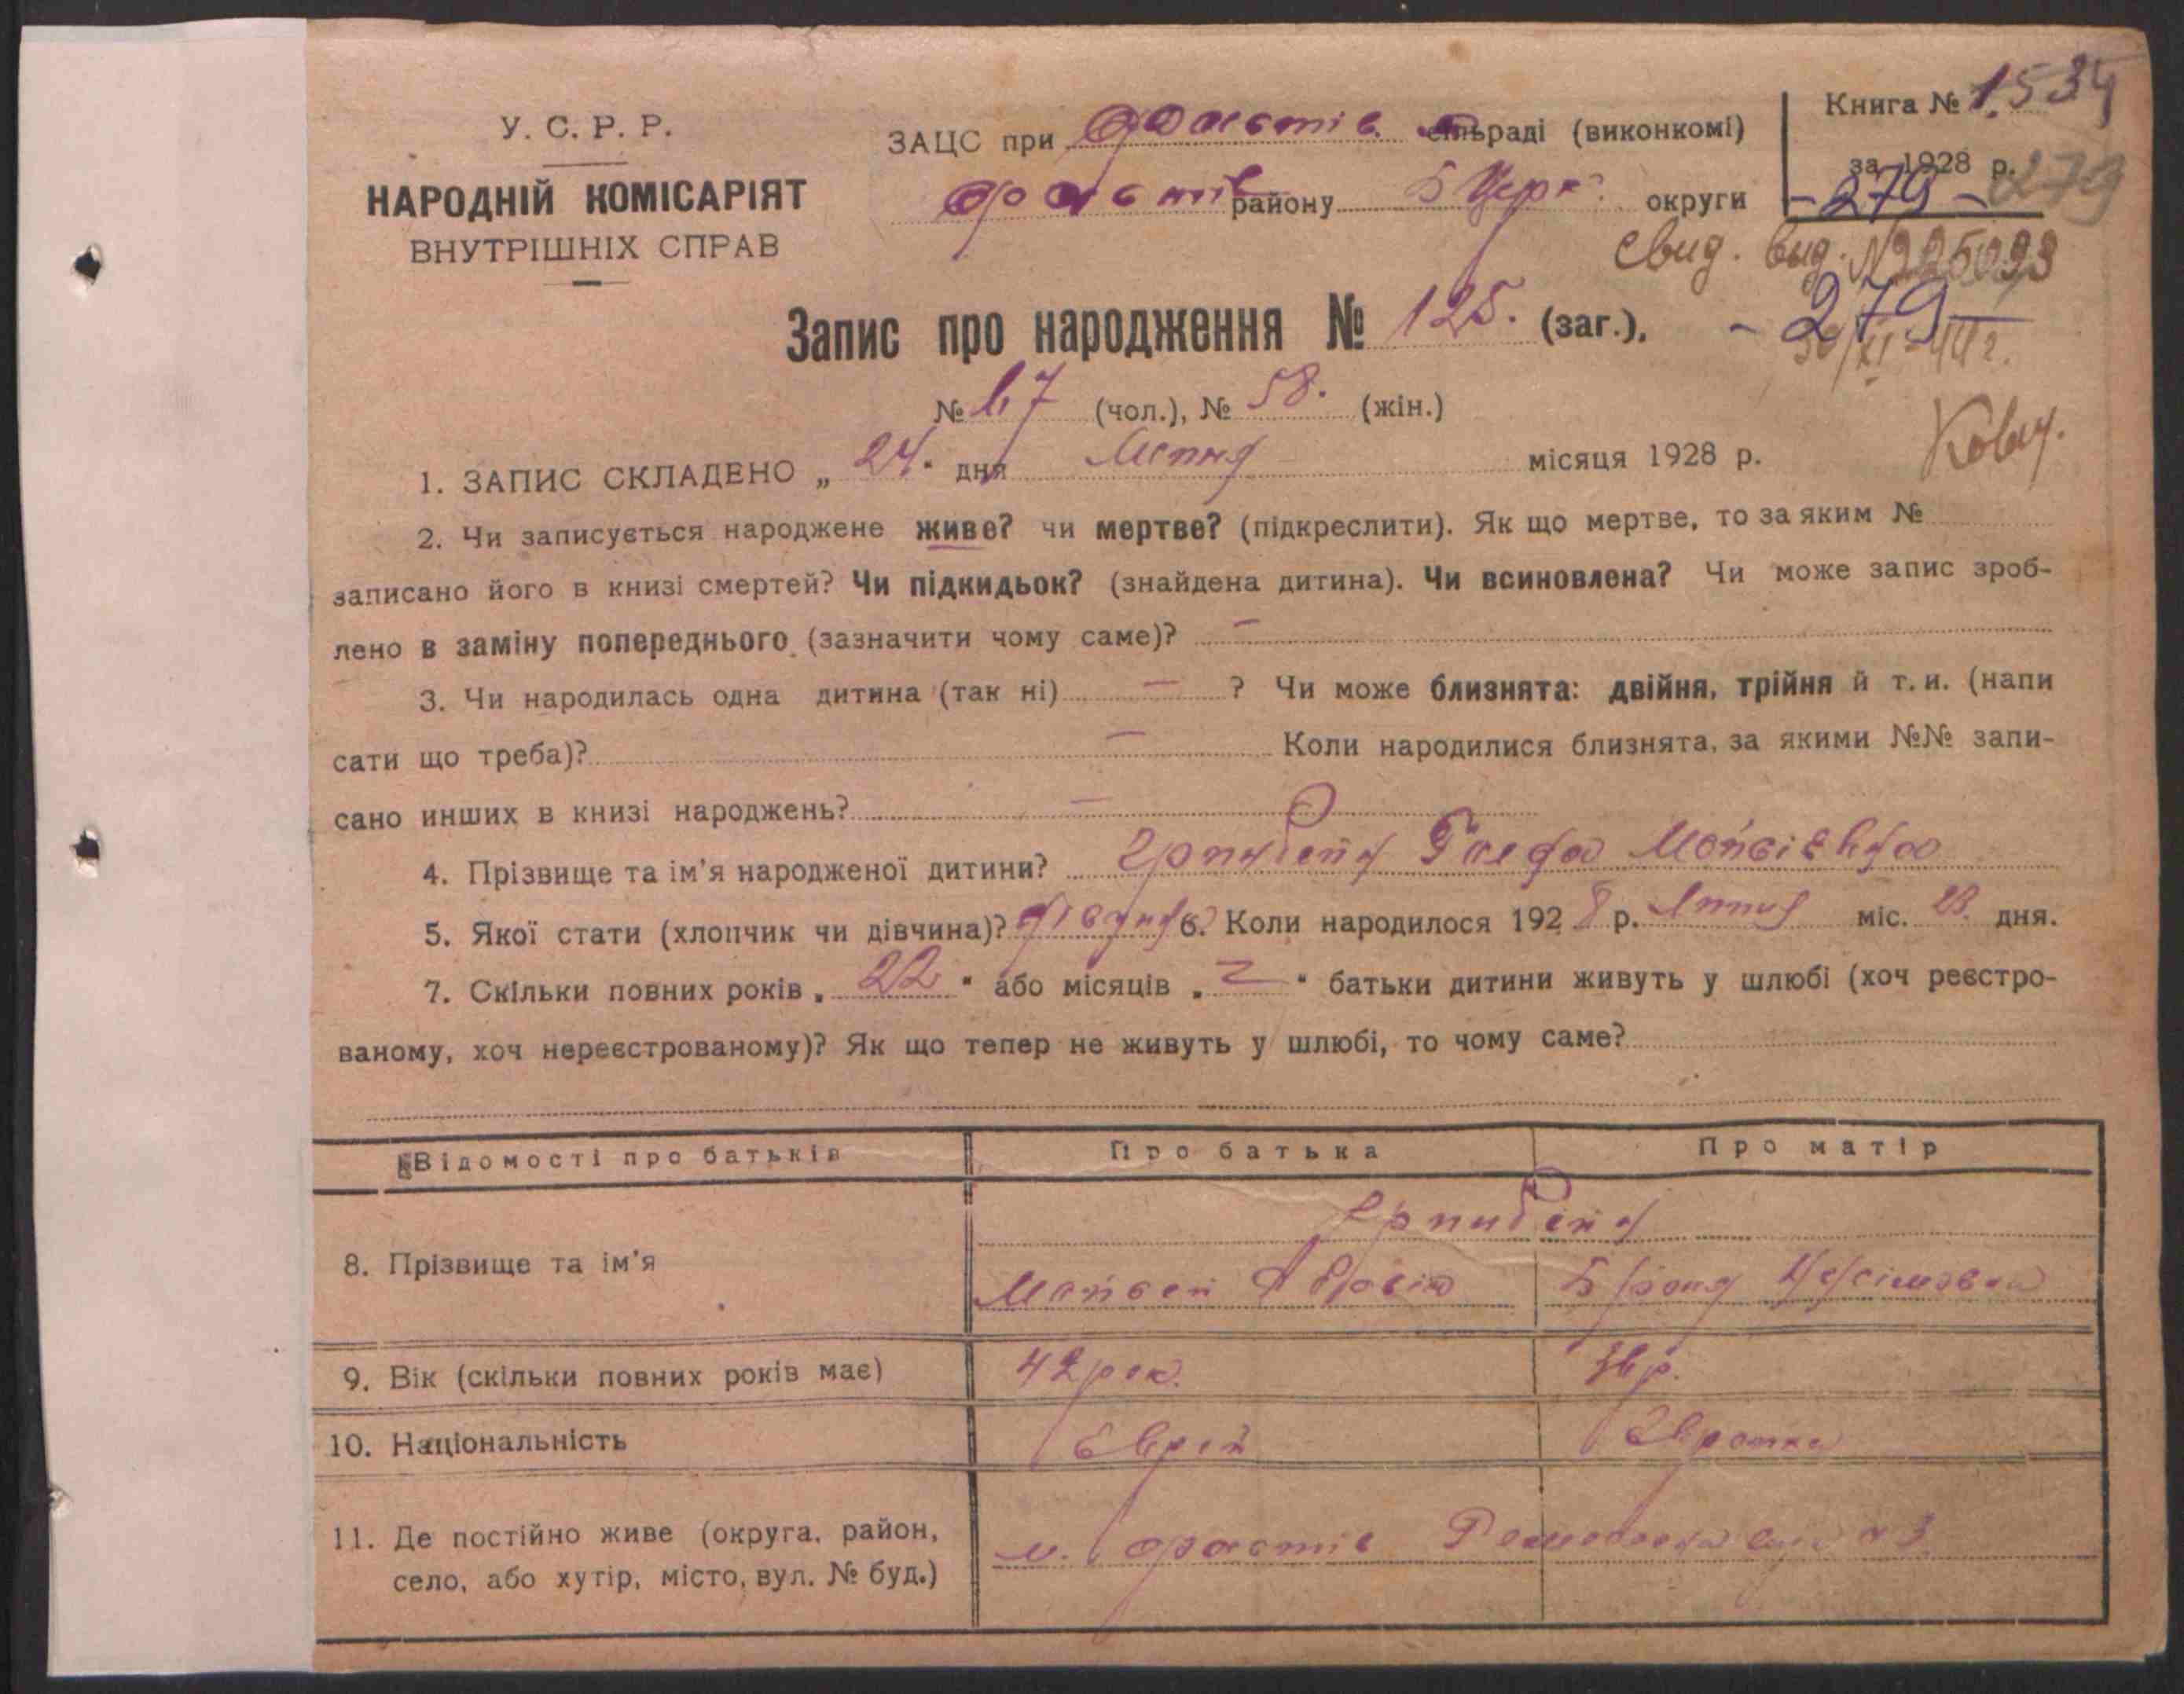 У. С. Р. Р.
НАРОДНІЙ КОМІСАРІЯТ
ВНУТРІШНІХ СПРАВ
ЗАЦС при Фастів. сільраді (виконкомі)
Фастів району Б Церк. округи
Книга № 1534
за 1928 р. 279
- 279 -
Свид. выд. №
- 279 -
Запис про народження № 125. (заг.),
№ 67 (чол.), № 58. (жін.)
1. ЗАПИС СКЛАДЕНО „ 24 " дня Липня місяця 1928 р.
2. Чи записується народжене живе? чи мертве? (підкреслити). Як що мертве, то за яким №
записано його в книзі смертей? Чи підкидьок? (знайдена дитина). Чи всиновлена? Чи може запис зроб-
лено в заміну попереднього (зазначити чому саме)? —
3. Чи народилась одна дитина (так ні) — ? Чи може близнята: двійня, трійня й т. и. (напи
сати що треба)? — Коли народилися близнята, за якими №№ запи-
сано инших в книзі народжень? —
4. Прізвище та ім'я народженої дитини?
5. Якої стати (хлопчик чи дівчина)? дівчина 6. Коли народилося 1928 р. Липня міс. 23. дня.
7. Скільки повних років „ 22 " або місяців „ — " батьки дитини живуть у шлюбі (хоч реєстро-
ваному, хоч нереєстрованому)? Як що тепер не живуть у шлюбі, то чому саме?
Відомості про батьків Про батька Про матір
8. Прізвище та ім'я
9. Вік (скільки повних років має) 42 рок. р.
10. Національність Еврей Еврейка
11. Де постійно живе (округа, район,
село, або хутір, місто, вул. № буд.) м. Фастів № 3